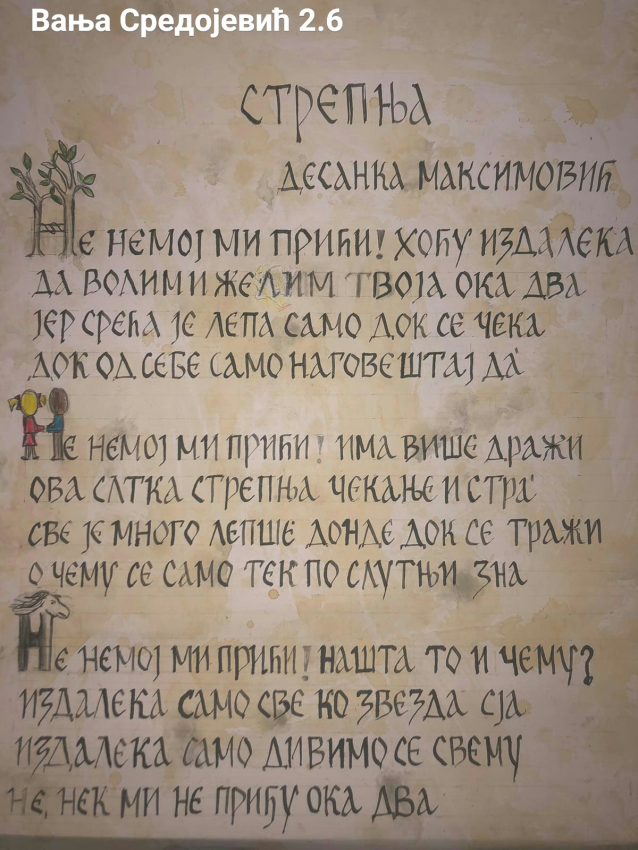 Вања Средојевић 2.6
СТРЕПЊА
ДЕСАНКА МАКСИМОВИЋ
НЕ НЕМОЈ МИ ПРИЋИ! ХОЋУ ИЗДАЛЕКА
ДА ВОЛИМ И ЖЕЛИМ ТВОЈА ОКА ДВА
ЈЕР СРЕЋА ЈЕ ЛЕПА САМО ДОК СЕ ЧЕКА
ДОК ОД СЕБЕ САМО НАГОВЕШТАЈ ДА
НЕ НЕМОЈ МИ ПРИЋИ! ИМА ВИШЕ ДРАЖИ
ОВА СЛТКА СТРЕПЊА ЧЕКАЊЕ И СТРА'
СВЕ ЈЕ МНОГО ЛЕПШЕ ДОНДЕ ДОК СЕ ТРАЖИ
О ЧЕМУ СЕ САМО ТЕК ПО СЛУТЊИ ЗНА
НЕ НЕМОЈ МИ ПРИЋИ! НАШТА ТО И ЧЕМУ?
ИЗДАЛЕКА САМО СВЕ КО ЗВЕЗДА СЈА
ИЗДАЛЕКА САМО ДИВИМО СЕ СВЕМУ
НЕ, НЕК МИ НЕ ПРИЂУ ОКА ДВА